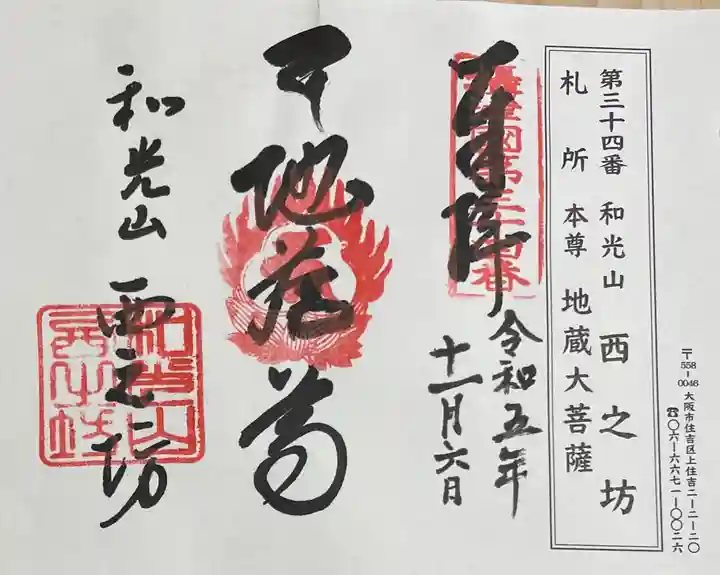 第三十四番 和光山 西之坊
札所 本尊 地蔵大菩薩
〒558-0046 大阪市住吉区上住吉二-二-二〇
☎〇六-六六七一-〇〇二六
奉拝
令和五年
十一月六日
地蔵尊
和光山 西之坊
和光山西之坊